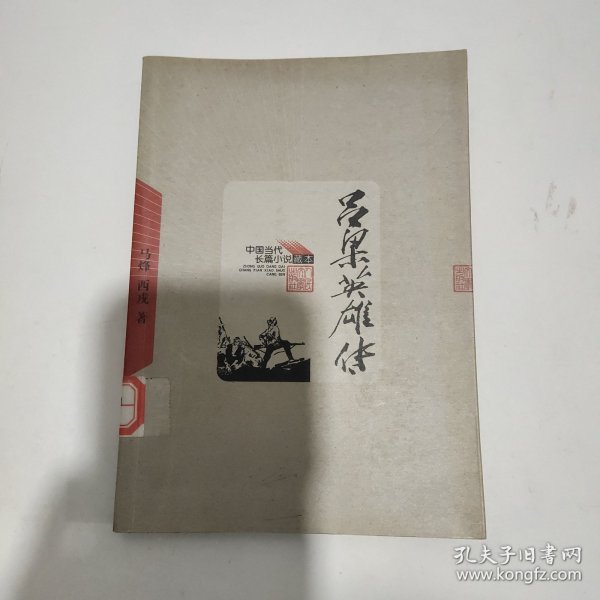 吕梁英雄传
中国当代
长篇小说藏本
ZHONG GUO DANG DAI
CHANG PIAN XIAO SHUO
CANG BEN
马烽 西戎 著
孔夫子旧书网
www.kongfz.com